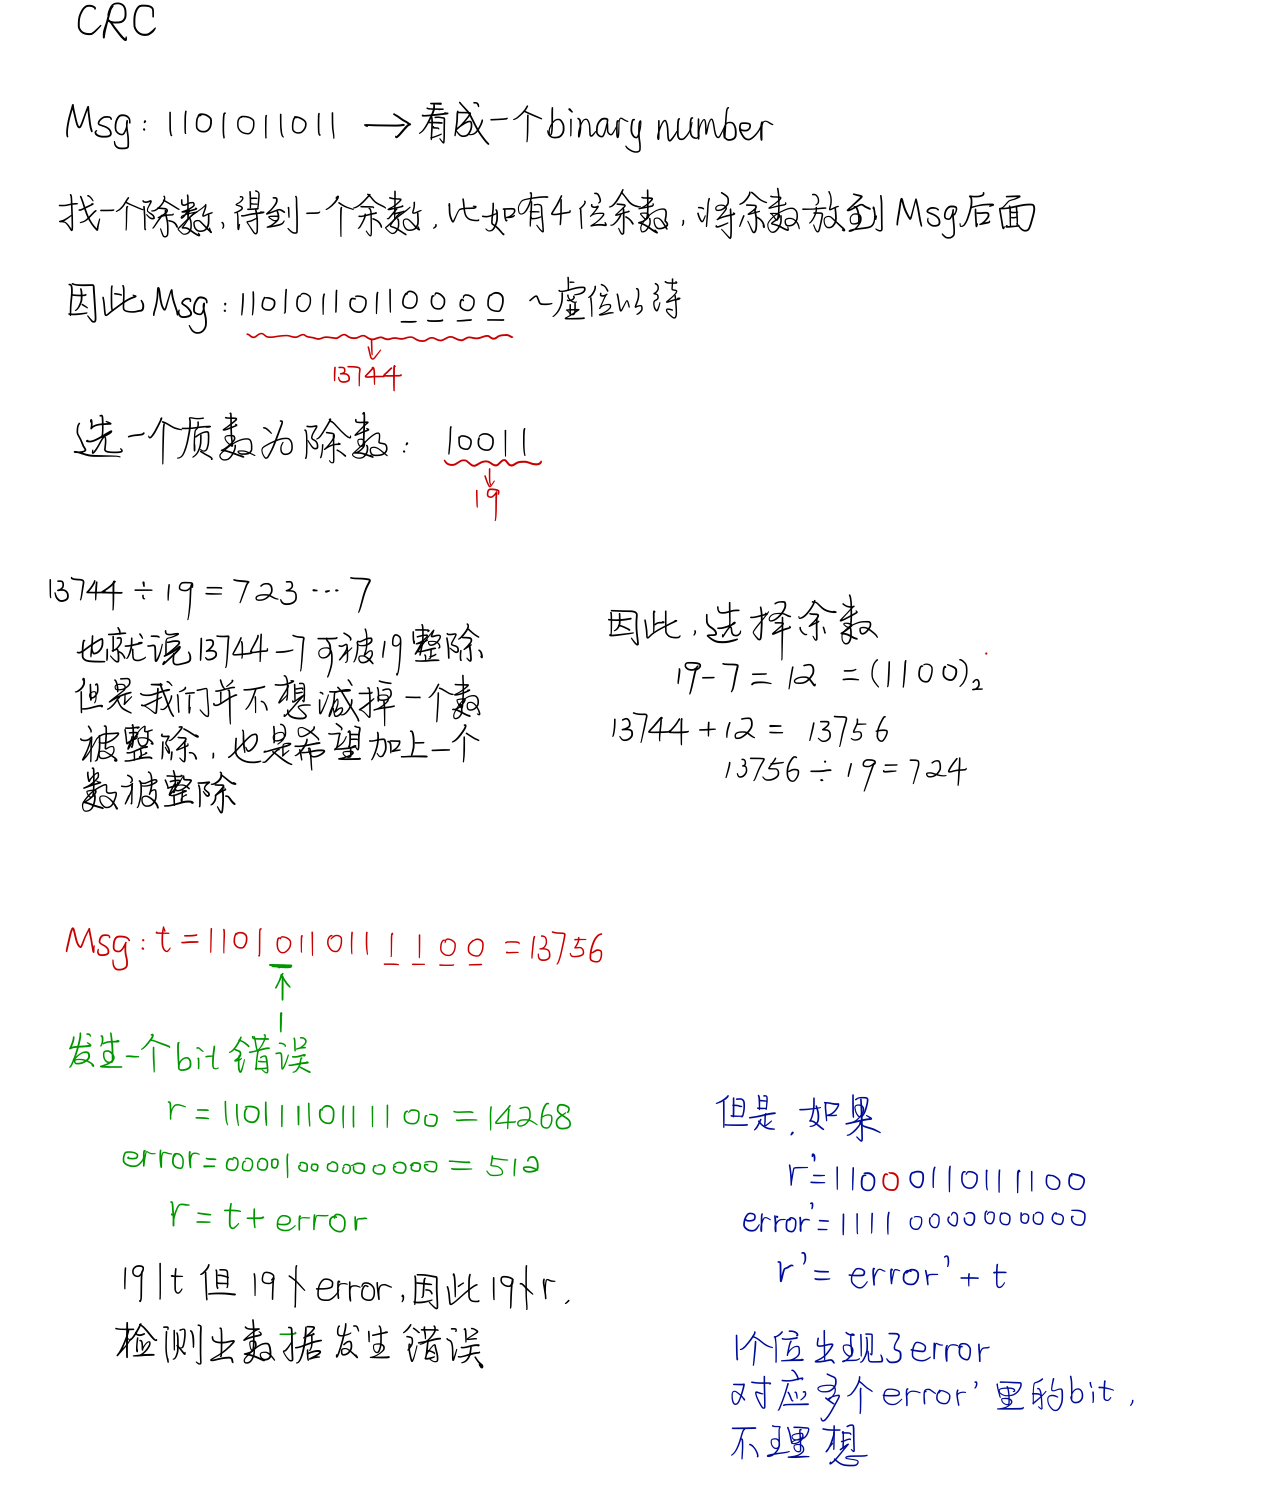 CRC
Msg: 1101011011 → 看成一个binary number
找一个除数,得到一个余数,比如有4位余数,将余数放到Msg后面
因此Msg:11010110110000 ~虚位以待
13744
选一个质数为除数: 10011
19
13744÷19=723…7
也就说13744-7可被19整除
但是我们并不想减掉一个数
被整除,也是希望加上一个
数被整除
因此,选择余数
19-7=12 =(1100)₂
13744+12= 13756
13756÷19=724
Msg:t=11010110111100=13756
1
发生一个bit错误
r=11011110111100=14268
error=00001000000000=512
r=t+error
19|t但19∤error,因此19∤r,
检测出数据发生错误
但是,如果
r'=11000110111100
error'=11110000000000
r'=error'+t
1个位出现了error
对应多个error'里的bit,
不理想